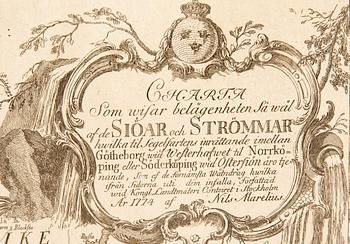 CHARTA
Som wisar belägenheten Så wäl
af de SIÖAR och STRÖMMAR
hwilka til Segelfartens inrättande imellan
Götheborg wid Westerhafwet til Norrkö-
ping eller Söderköping wid Östersiön äro tje-
nande, Som af de förnämsta Watudrag hwilka
ifrån Sidorna uti den infalla, Författad
wid Kongl. Landtmäteri Contoret i Stockholm
År 1774 af Nils Marelius.